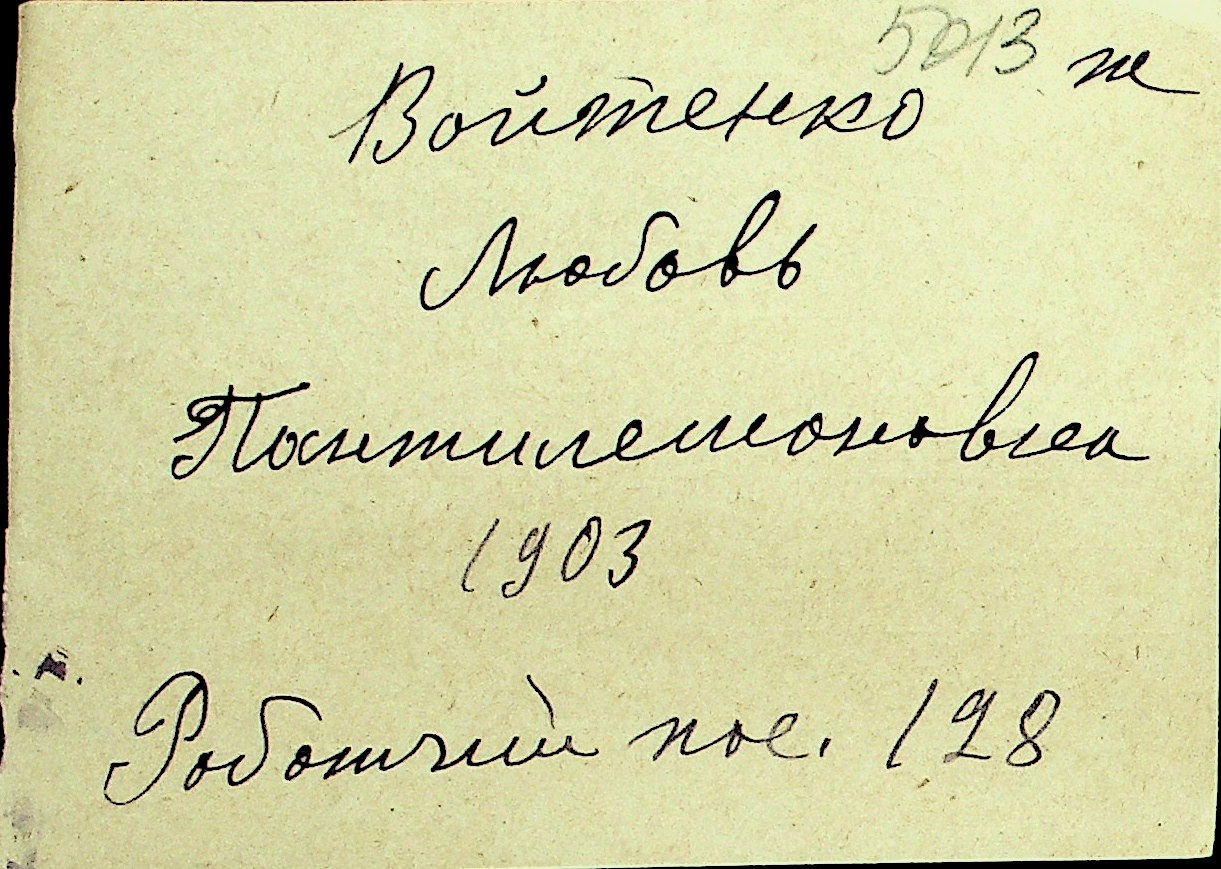 5013 ж
Войтенко
Любовь
Пантилемоновна
1903
Работчий пос. 128